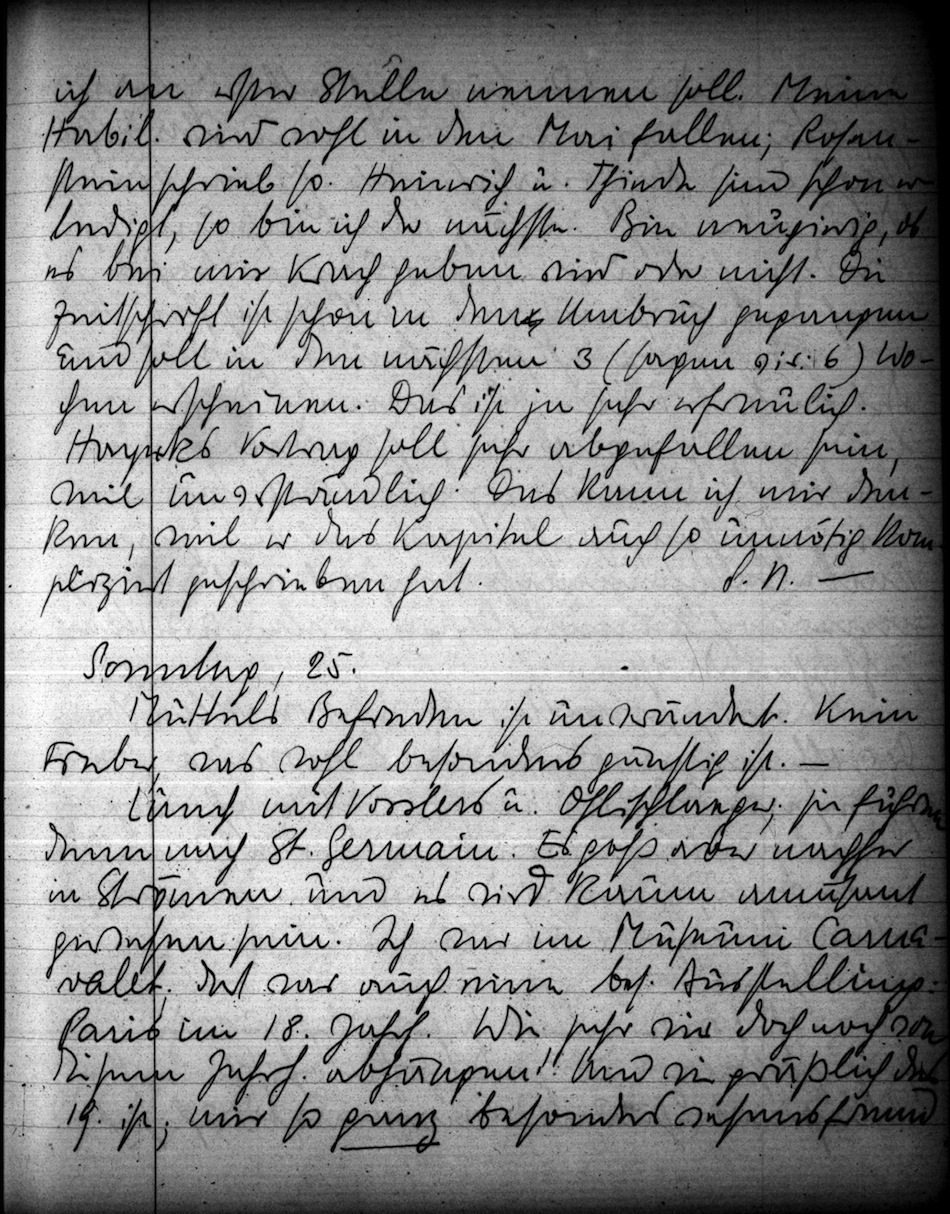 ich an erster Stelle nennen soll. Meine
Habil. wird wohl in den Mai fallen; Rosen-
stein schrieb so. Heinrich u. Thiede sind schon er-
ledigt, so bin ich der nächste. Bin neugierig, ob
es bei mir Krach geben wird oder nicht. Die
Zeitschrift ist schon in den Umbruch gegangen
und soll in den nächsten 3 (sagen wir: 6) Wo-
chen erscheinen. Das ist ja sehr erfreulich.
Hayeks Vortrag soll sehr abgefallen sein,
weil unverständlich. Das kann ich mir den-
ken, weil er das Kapitel auch so unnötig kom
pliziert geschrieben hat. S. N. —
Sonntag, 25.
Muttels Befinden ist unverändert. Kein
Fieber, was wohl besonders günstig ist. —
Lunch mit Vosslers u. Ohlischlaeger; sie fuhren
dann nach St. Germain. Es goß aber nachher
in Strömen und es wird kaum amüsant
gewesen sein. Ich war im Museum Carna-
valet; dort war auch eine bes. Ausstellung:
Paris im 18. Jahrh. Wie sehr wir doch noch von
diesem Jahrh. abhängen! Und wie gräßlich das
19. ist; mir so ganz besonders wesensfremd